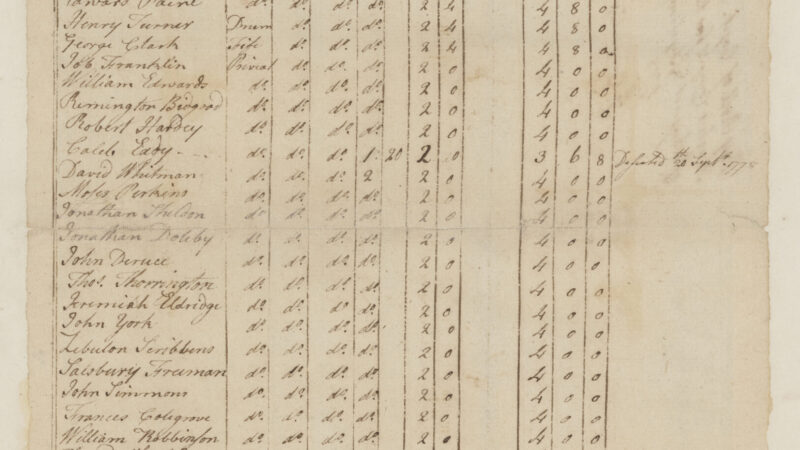 Edward Paine d.o d.o d.o d.o 2 4 4 8 0
Henry Turner Drum d.o d.o d.o 2 4 4 8 0
George Clark Fife d.o d.o d.o 2 4 4 8 0
Job Franklin Privat d.o d.o d.o 2 0 4 0 0
William Edwards d.o d.o d.o d.o 2 0 4 0 0
Remington d.o d.o d.o d.o 2 0 4 0 0
Robert Hardey d.o d.o d.o d.o 2 0 4 0 0
Caleb Eddy d.o d.o d.o 1 20 2 0 3 6 8 Deserted th 20 Sept.r 1778
David Whitman d.o d.o d.o 2 2 0 4 0 0
Moses Perkins d.o d.o d.o d.o 2 0 4 0 0
Jonathan Shildon d.o d.o d.o d.o 2 0 4 0 0
Jonathan d.o d.o d.o d.o 2 0 4 0 0
John d.o d.o d.o d.o 2 0 4 0 0
Tho.s Thorrington d.o d.o d.o d.o 2 0 4 0 0
Jeremiah Eldridge d.o d.o d.o d.o 2 0 4 0 0
John York d.o d.o d.o d.o 2 0 4 0 0
Zebulon Scribbens d.o d.o d.o d.o 2 0 4 0 0
Salsbury Freeman d.o d.o d.o d.o 2 0 4 0 0
John Simmons d.o d.o d.o d.o 2 0 4 0 0
Frances Colegrove d.o d.o d.o d.o 2 0 4 0 0
William Robbinson d.o d.o d.o d.o 2 0 4 0 0